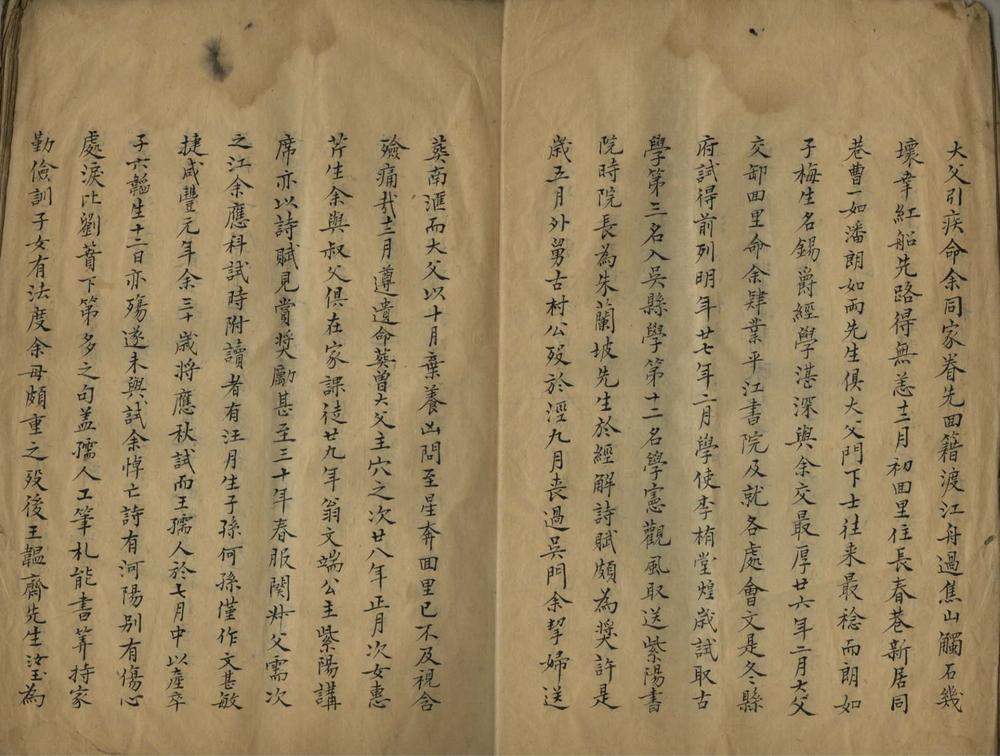 大父引疾命余同家眷先回籍渡江舟過焦山觸石幾
壞幸紅船先路得無恙十二月初回里住長春巷新居同
巷曹一如潘朗如兩先生俱大父門下士往来最稔而朗如
子梅生名錫爵經學湛深與余交最厚廿六年二月大父
交卸回里命余肄業平江書院及就各處會文是冬縣
府試得前列明年廿七年二月學使李楢堂煌歲試取古
學第三名入吳縣學第十二名學憲觀風取送紫陽書
院時院長為朱蘭坡先生於經解詩賦頗為奬許是
歲五月外舅古村公歿於涇九月喪過吳門余挈婦送
葬南滙而大父以十月棄養凶問至星奔回里已不及視含
殮痛哉十二月遵遺命葬曾大父主穴之次廿八年正月次女惠
芹生余與叔父俱在家課徒廿九年翁文端公主紫陽講
席亦以詩賦見賞奬勵甚至三十年春服闋叔父需次
之江余應科試時附讀者有汪月生子孫何孫僅作文甚敏
捷咸豐元年余三十歲將應秋試而王孺人於七月中以產卒
子六韜生十二日亦殤遂未與試余悼亡詩有河陽别有傷心
處淚比劉蕡下第多之句盖孺人工筆札能書筭持家
勤儉訓子女有法度余母頗重之歿後王韞齋先生汝玉為